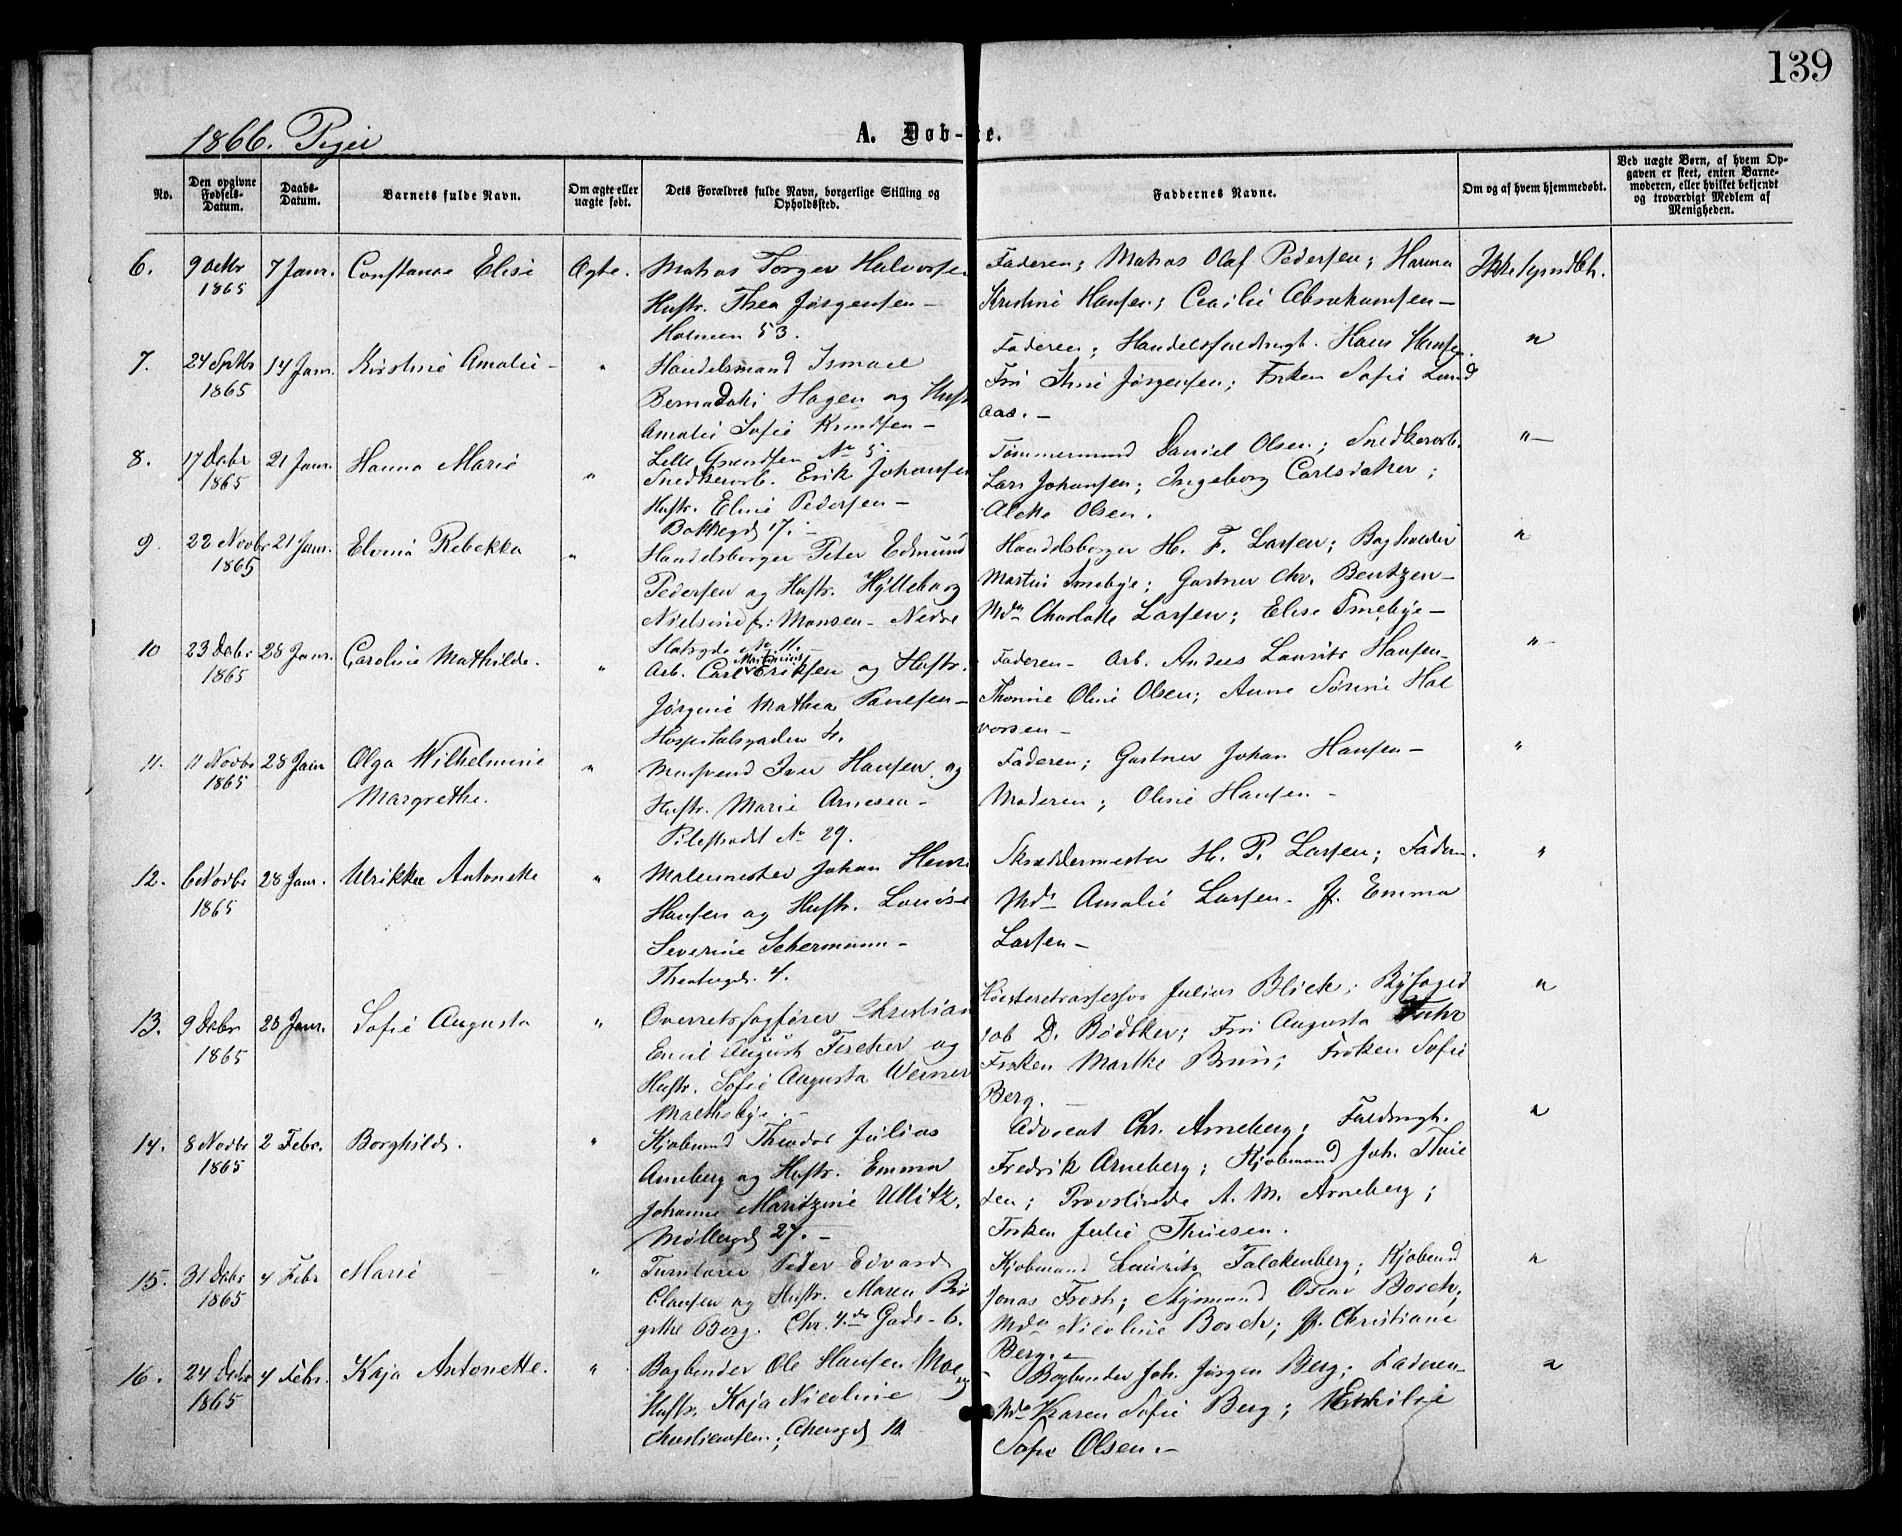 139
1866. Piger
A. Døb-te.
No.
Den opgivne Fødsels-Datum.
Daabs-Datum.
Barnets fulde Navn.
Om ægte eller uægte født.
Dets Forældres fulde Navn, borgerlige Stilling og Opholdssted.
Faddernes Navne.
Om og af hvem hjemmedøbt.
Ved uægte Børn, af hvem Op-
gaven er skeet, enten Barne-
moderen, eller hvilket bekjendt
og troværdigt Medlem af
Menigheden.
6. 9 Octbr 1865 7 Janr. Constance Elise Ægte.
Matros Torger Halvorsen
Hustr. Thea Jørgensen -
Holmen 53.
Faderen; Matros Olaf Pedersen; Hanna
Kristine Hansen; Cecilie Abrahamsen -
7. 24 Sptbr 1865 14 Janr. Kristine Amalie - "
Handelsmand Ismael
Bernadotti Hagen og Hust
Amalie Sofie Knudsen -
Lille Grendsen No 5.
Faderen; Handelsfuldmgt. Hans Hansen.
Fru Stine Jørgensen; Frøken Sofie Lund
aas. -
"
8. 17 Decbr 1865 21 Janr. Hanna Marie "
Snedkersv. Erik Johansen
Hustr. Eline Pedersen -
Bakkegd 17. -
Tømmermand Daniel Olsen; Snedkersv.
Lars Johansen; Ingeborg Carlsdatter;
Alette Olsen.
" -
9. 22 Novbr 1865 21 Janr. Elvina Rebekka "
Handelsborger Peter Edmund
Pedersen og Hustr. Hylleborg
Nielsine f: Monsen - Nedre
Slotsgde No 11. -
Handelsborger H. F. Larsen; Bogholder
Martin Smebye; Gartner Chr. Bentzen -
Mdm Charlotte Larsen; Elise Smebye -
"
10 23 Decbr 1865 28 Janr. Caroline Mathilde. "
Arb. Carl Martinius Eriksen og Hustr.
Jørgine Mathea Paulsen -
Hospitalsgaden 4.
Faderen - Arb. Anders Laurits Hansen -
Thomine Oline Olsen; Anne Sørine Hal
vorsen -
" -
11. 11 Novbr 1865 28 Janr Olga Wilhelmine
Margrethe. "
Mursvend Iver Hansen og
Hustr. Marie Arnesen -
Pilestrædet No 29.
Faderen; Gartner Johan Hansen -
Moderen; Oline Hansen -
"
12. 6 Novbr 1865 28 Janr. Ulrikke Antonette "
Malermester Johan Henr
Hansen og Hustr. Louise
Severine Schermann -
Theatergd. 4.
Skræddermester H. P. Larsen; Faderen.
Mdm Amalie Larsen - Jf. Emma
Larsen -
"
13. 9 Decbr 1865 28 Janr. Sofie Augusta "
Overretssagfører Christian
Emil August Fischer og
Hustr. Sofie Augusta Werner
Maltheby. -
Høiesteretsassessor Julius Blich; Byfoged
Jak D. Bødtker; Fru Augusta Fuhr
Frøken Marthe Brun; Frøken Sofie
Berg. -
"
14. 8 Novbr 1865 2 Febr. Borghild. "
Kjøbmand Theodor Julius
Arneberg og Hustr. Emma
Johanne Maritzine Ullitz.
Møllergd 27. -
Advocat Chr. Arneberg; Fuldmgt.
Fredrik Arneberg; Kjøbmand Joh. Thue
sen; Provstinde A. M. Arneberg;
Frøken Julie Thuesen.
"
15. 31 Decbr 1865 4 Febr Marie "
Turnlærer Peder Edvard
Clausen og Hustr. Maren Bir
gitte Berg. Chr. 4.des Gade - 6.
Kjøbmand Laurits Falckenberg; Kjøbmd
Jonas Frost; Styrmand Oscar Bosch;
Mdm Nicoline Bosch; Jf. Christiane
Berg. -
"
16. 24 Decbr 1865 4 Febr. Kaja Antonette. "
Bogbinder Ole Hansen Moe og
Hustr. Kaja Nicoline
Christiansen. Akersgd 10
- Bogbinder Joh. Jørgen Berg; Faderen -
Mdm Karen Sofie Berg;
Sofie Olsen. -
"
Ikke hjemdbt.